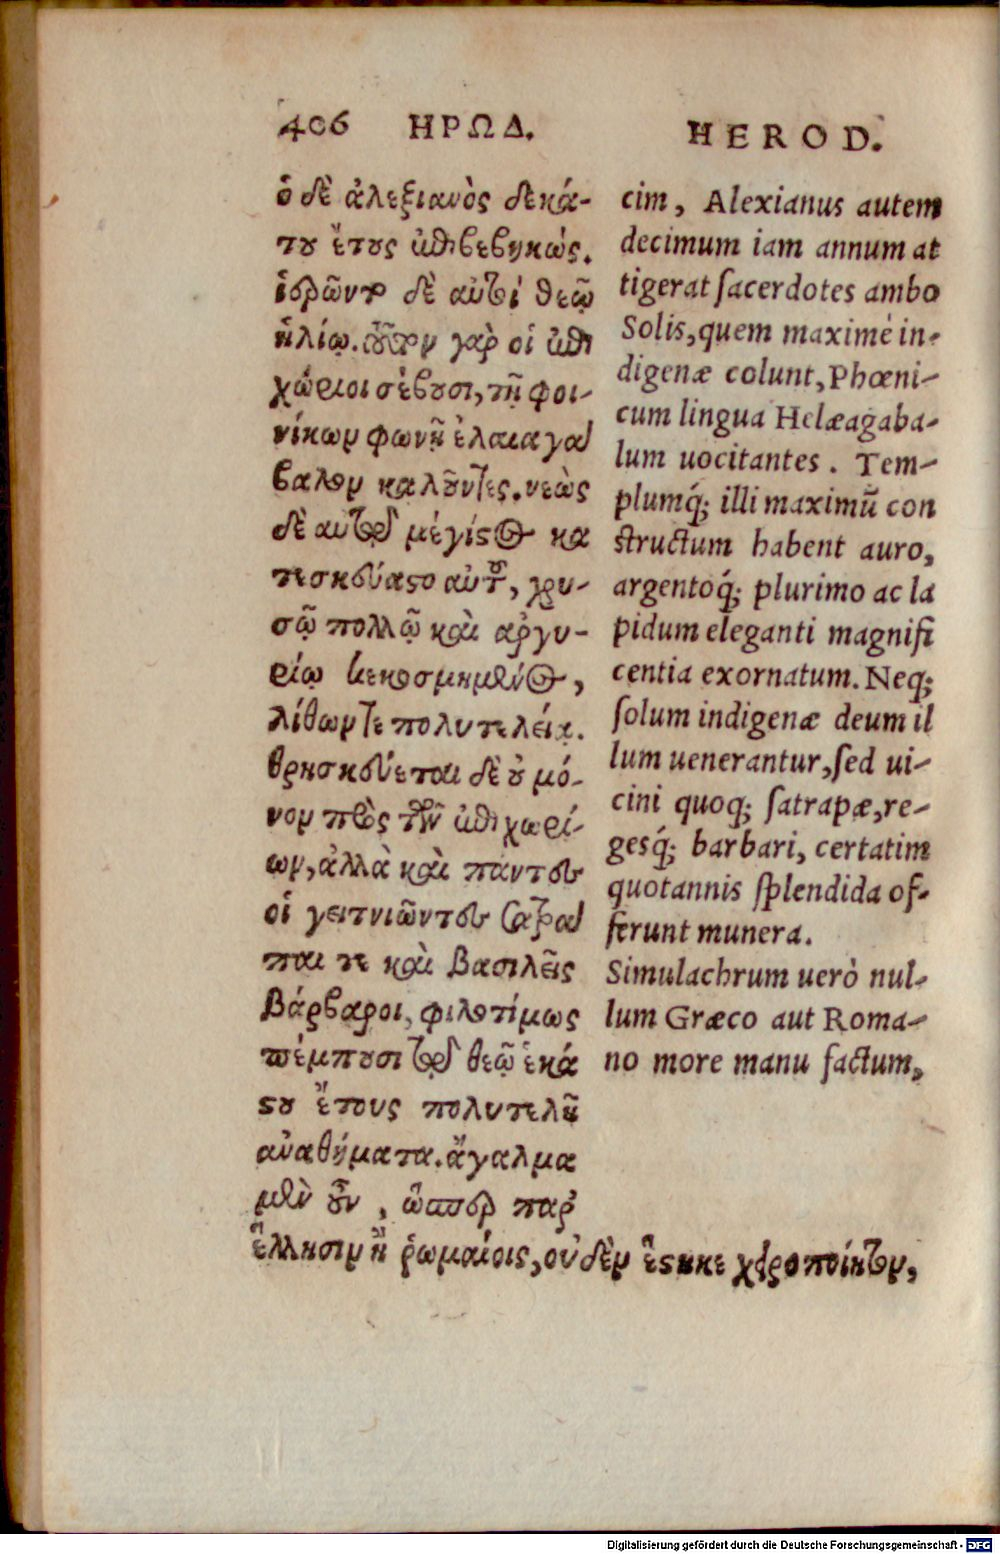 406 ΗΡΩΔ.
ὁ δὲ ἀλεξιανὸς δεκά-
του ἔτους ἐπιβεβηκώς.
ἱερῶντο δὲ αὐτοὶ θεῷ
ἡλίῳ. τοῦτον γὰρ οἱ ἐπι
χώριοι σέβουσι, τῇ φοι-
νίκων φωνῇ ἐλαιαγα
βαλον καλοῦντες. νεὼς
δὲ αὐτοῦ μέγιστος κα
τεσκεύαστο αὐτοῦ, χρυ-
σῷ πολλῷ καὶ ἀργυ-
ρίῳ κεκοσμημένος,
λίθων τε πολυτελείᾳ.
θρησκεύεται δὲ οὐ μό-
νον πρὸς τῶν ἐπιχωρί-
ων, ἀλλὰ καὶ πάντες
οἱ γειτνιῶντες σατρα
παι τε καὶ βασιλεῖς
βάρβαροι, φιλοτίμως
πέμπουσι τοῦ θεῷ ἑκά
στου ἔτους πολυτελῆ
ἀναθήματα. ἄγαλμα
μὲν οὖν, ὥσπερ παρ'
ἕλλησιν ἢ ῥωμαίοις, οὐδὲν ἕστηκε χειροποίητον,
HEROD.
cim, Alexianus autem
decimum iam annum at
tigerat ſacerdotes ambo
Solis, quem maximè in-
digenæ colunt, Phœni-
cum lingua Helæagaba-
lum uocitantes. Tem-
plumq́; illi maximũ con
ſtructum habent auro,
argentoq́; plurimo ac la
pidum eleganti magnifi
centia exornatum. Neq;
ſolum indigenæ deum il
lum uenerantur, ſed ui-
cini quoq; ſatrapæ, re-
gesq́; barbari, certatim
quotannis ſplendida of-
ferunt munera.
Simulachrum uerò nul-
lum Græco aut Roma-
no more manu factum,
Digitalisierung gefördert durch die Deutsche Forschungsgemeinschaft - DFG